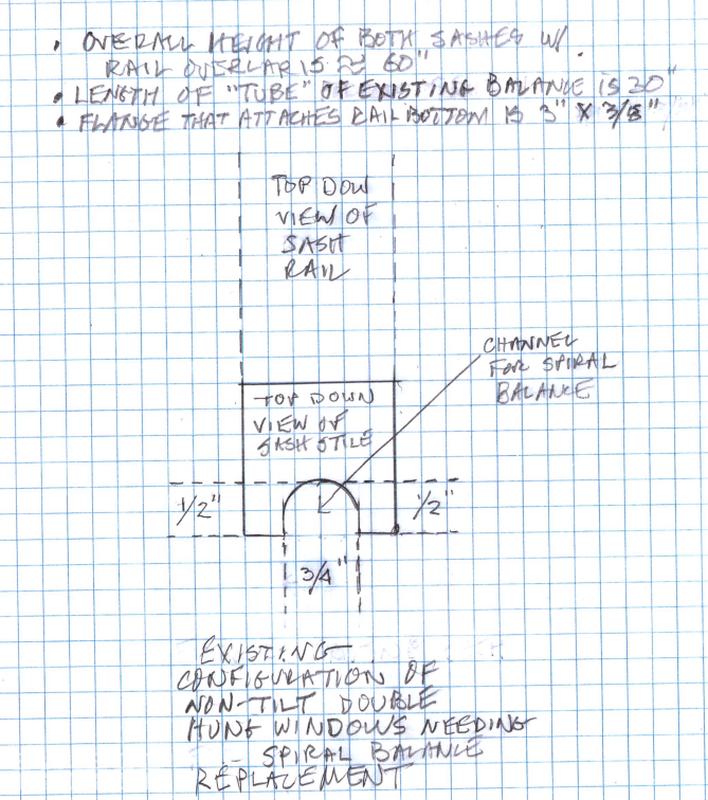 • OVERALL HEIGHT OF BOTH SASHES W/
RAIL OVERLAP IS ≈ 60"
• LENGTH OF "TUBE" OF EXISTING BALANCE IS 20"
• FLANGE THAT ATTACHES RAIL BOTTOM IS 3" X 3/8"
TOP DOW
VIEW OF
SASH
RAIL
CHANNEL
FOR SPIRAL
BALANCE
TOP DOWN
VIEW OF
SASH STILE
1/2"
1/2"
3/4"
EXISTING
CONFIGURATION OF
NON-TILT DOUBLE
HUNG WINDOWS NEEDING
SPIRAL BALANCE
REPLACEMENT